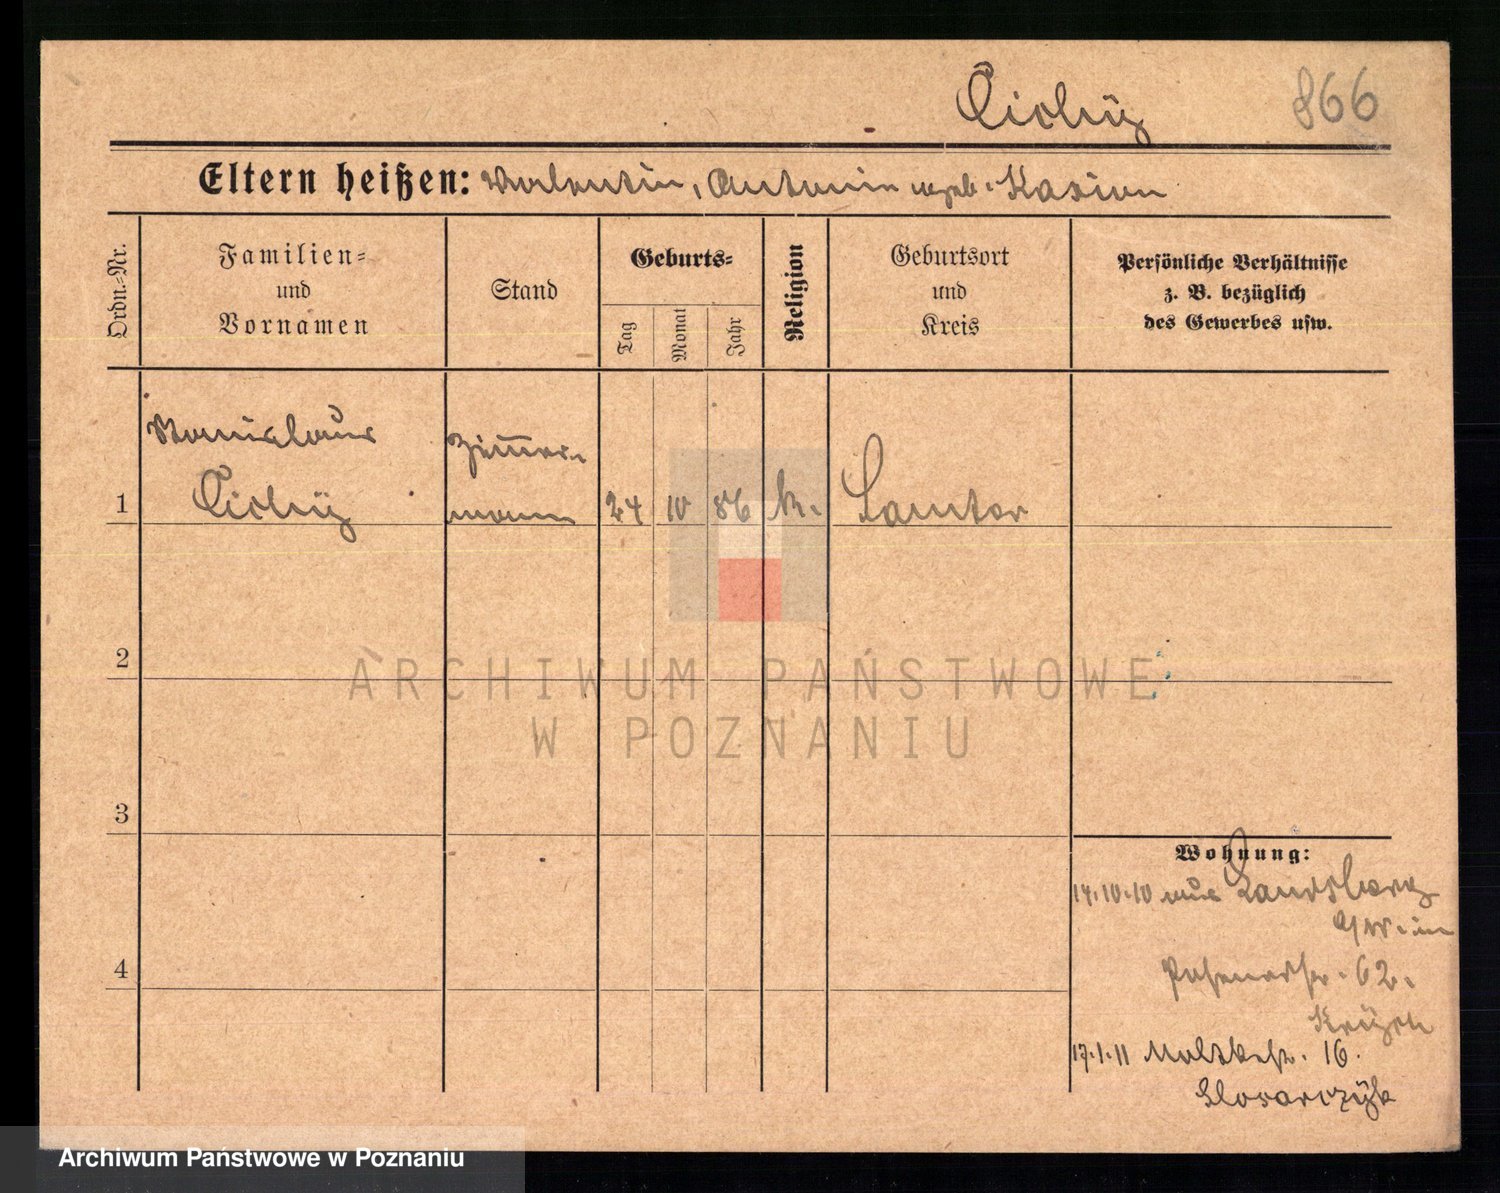 Cichÿ 866
Eltern heißen: Valentin, Antonie geb. Kasian
Ordn.=Nr.
Familien=
und
Vornamen
Stand
Geburts=
Tag
Monat
Jahr
Religion
Geburtsort
und
Kreis
Persönliche Verhältnisse
z. B. bezüglich
des Gewerbes usw.
Stanislaus Zim̅er-
1 Cichÿ mann 24 10 86 k. Samter
2
3
4
Wohnung:
14.10.10 aus Landsberg
a/W. in
Posenerstr. 62.
17.1.11 Moltkestr. 16.
ARCHIWUM PAŃSTWOWE
W POZNANIU
Archiwum Państwowe w Poznaniu